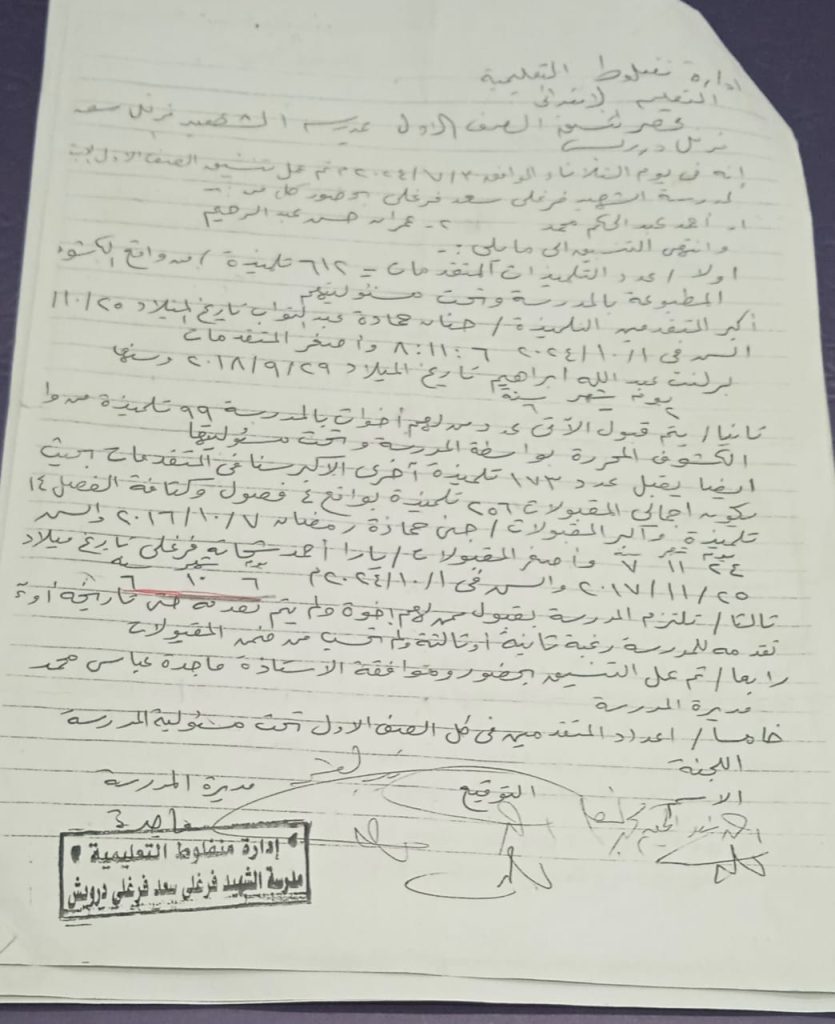 ادارة منفلوط التعليمية
التعليم الابتدائى
محضر تنسيق الصف الاول بمدرسة الشهيد فرغلى سعد
فرغلى درويش
إنه فى يوم الثلاثاء الموافق ٢٠٢٤/٧/٣٠ م تم عمل تنسيق الصف الاول
لمدرسة الشهيد فرغلى سعد فرغلى بحضور كل من :-
١- أحمد عبد الحكم محمد ٢- عمران حسن عبد الرحيم
وانتهى التنسيق الى ما يلى :-
اولا / عدد التلميذات المتقدمات = ٦١٢ تلميذة / من واقع الكشوف
المطبوعة بالمدرسة وتحت مسئوليتهم
أكبر المتقدمين التلميذة / حنان حمادة عبد التواب تاريخ الميلاد ١١٠/٢٥
السن فى ٢٠٢٤/١٠/١ ٨:١١:٦ وأصغر المتقدمات
برلنت عبد الله ابراهيم تاريخ الميلاد ٢٠١٨/٩/٢٩ وسنها
٢ يوم شهر ٦ سنة
ثانيا / يتم قبول الآتى عدد من لهم أخوات بالمدرسة ٩٩ تلميذة من وا
الكشوف المحررة بواسطة المدرسة وتحت مسئوليتها
ايضا يقبل عدد ١٧٣ تلميذة أخرى الاكبر سنا فى المتقدمات بحيث
يكون اجمالى المقبولات ٢٥٦ تلميذة بواقع ٤ فصول وكثافة الفصل ٦٤
تلميذة وأكبر المقبولات / جنى حمادة رمضان ٢٠١٦/١٠/٧ والسن
٢٤ يوم ١١ شهر ٧ سنة وأصغر المقبولات / يارا أحمد شحاته فرغلى تاريخ ميلاد
٢٠١٧/١١/٢٥ والسن فى ٢٠٢٤/١٠/١ م ٦ يوم ١٠ شهر ٦ سنة
ثالثا / تلتزم المدرسة بقبول من لهم إخوة ولم يتم تقدمه حتى تاريخه أو تم
تقدمه للمدرسة رغبة ثانية أو ثالثة ولم تحسب من ضمن المقبولات
رابعا / تم عمل التنسيق بحضور وموافقة الاستاذة ماجدة عباس محمد
مديرة المدرسة
خامسا / اعداد المتقدمين فى كل الصف الاول تحت مسئولية المدرسة
اللجنة
الاسم التوقيع مديرة المدرسة
ماجدة
إدارة منفلوط التعليمية
مدرسة الشهيد فرغلي سعد فرغلي درويش